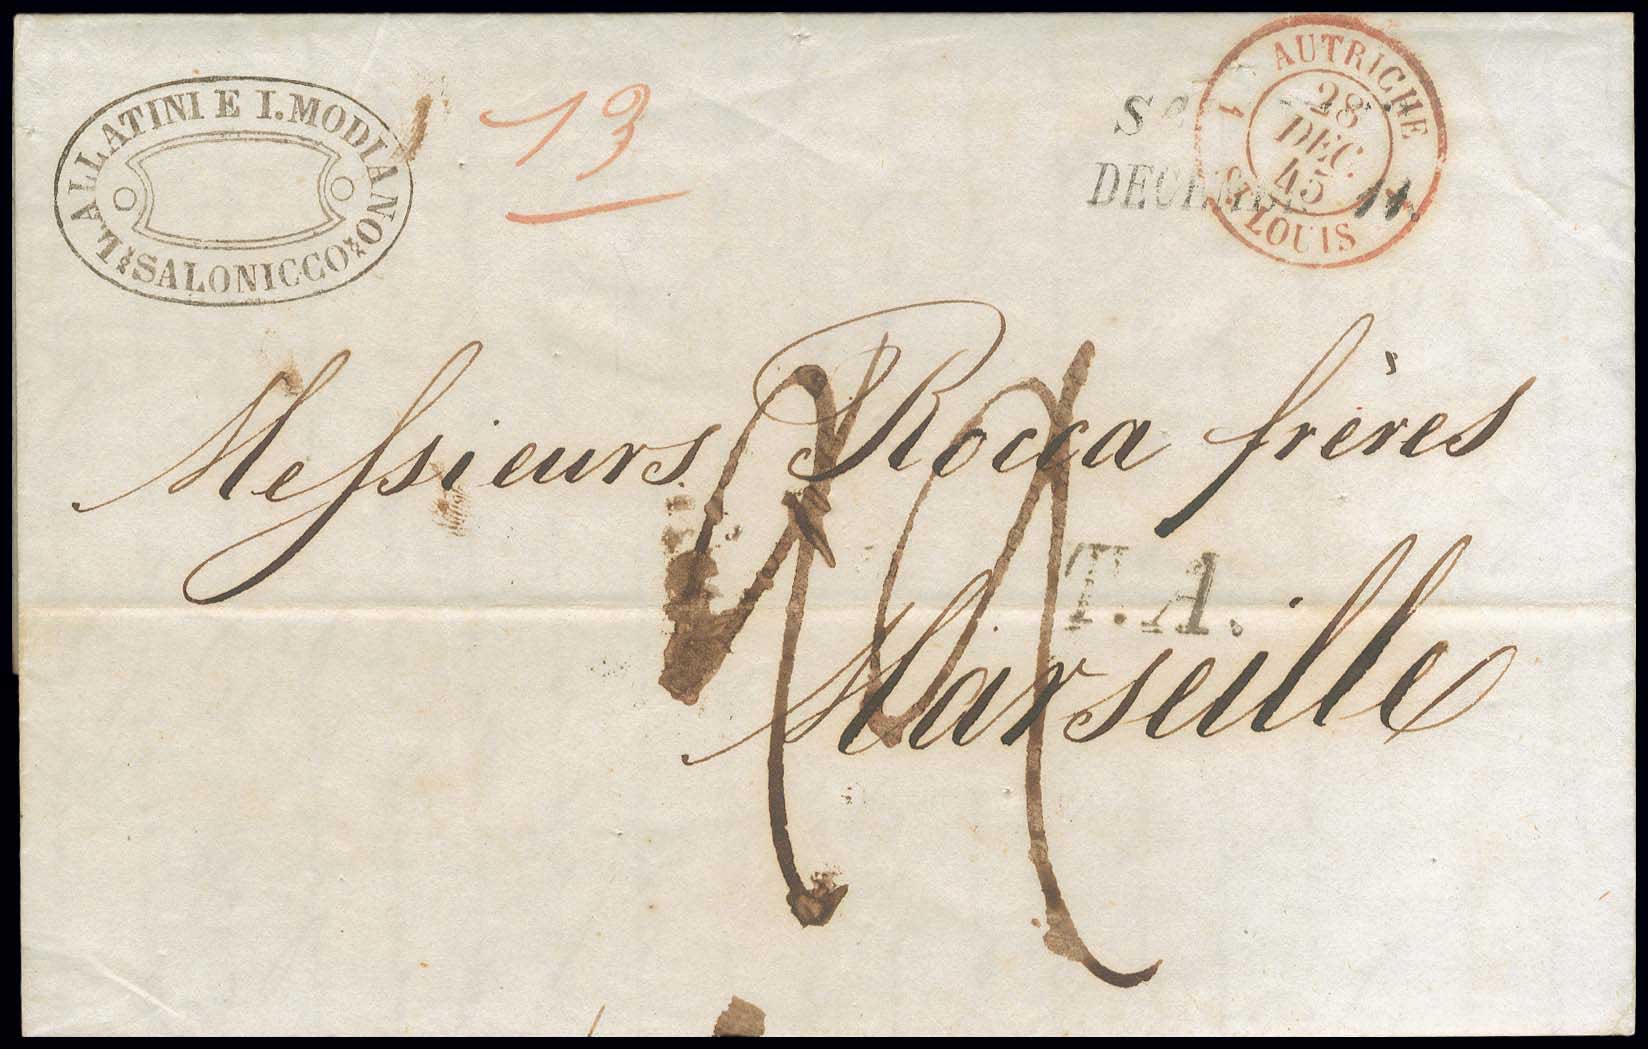 L. ALLATINI E I. MODIANO
SALONICCO
13
DECEMBR. 11.
AUTRICHE
28
DEC.
45
ST LOUIS
Messieurs Rocca frères
T.A.
Marseille